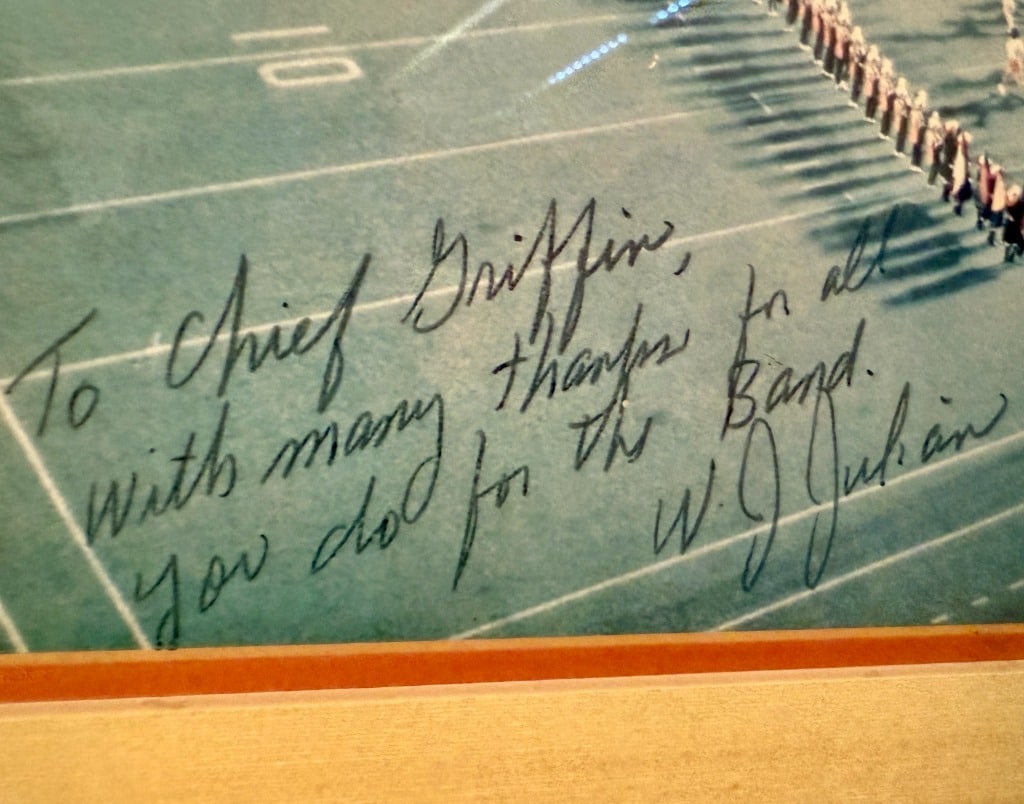 0
To Chief Griffin,
With many thanks for all
you do for the Band.
W. J Julian